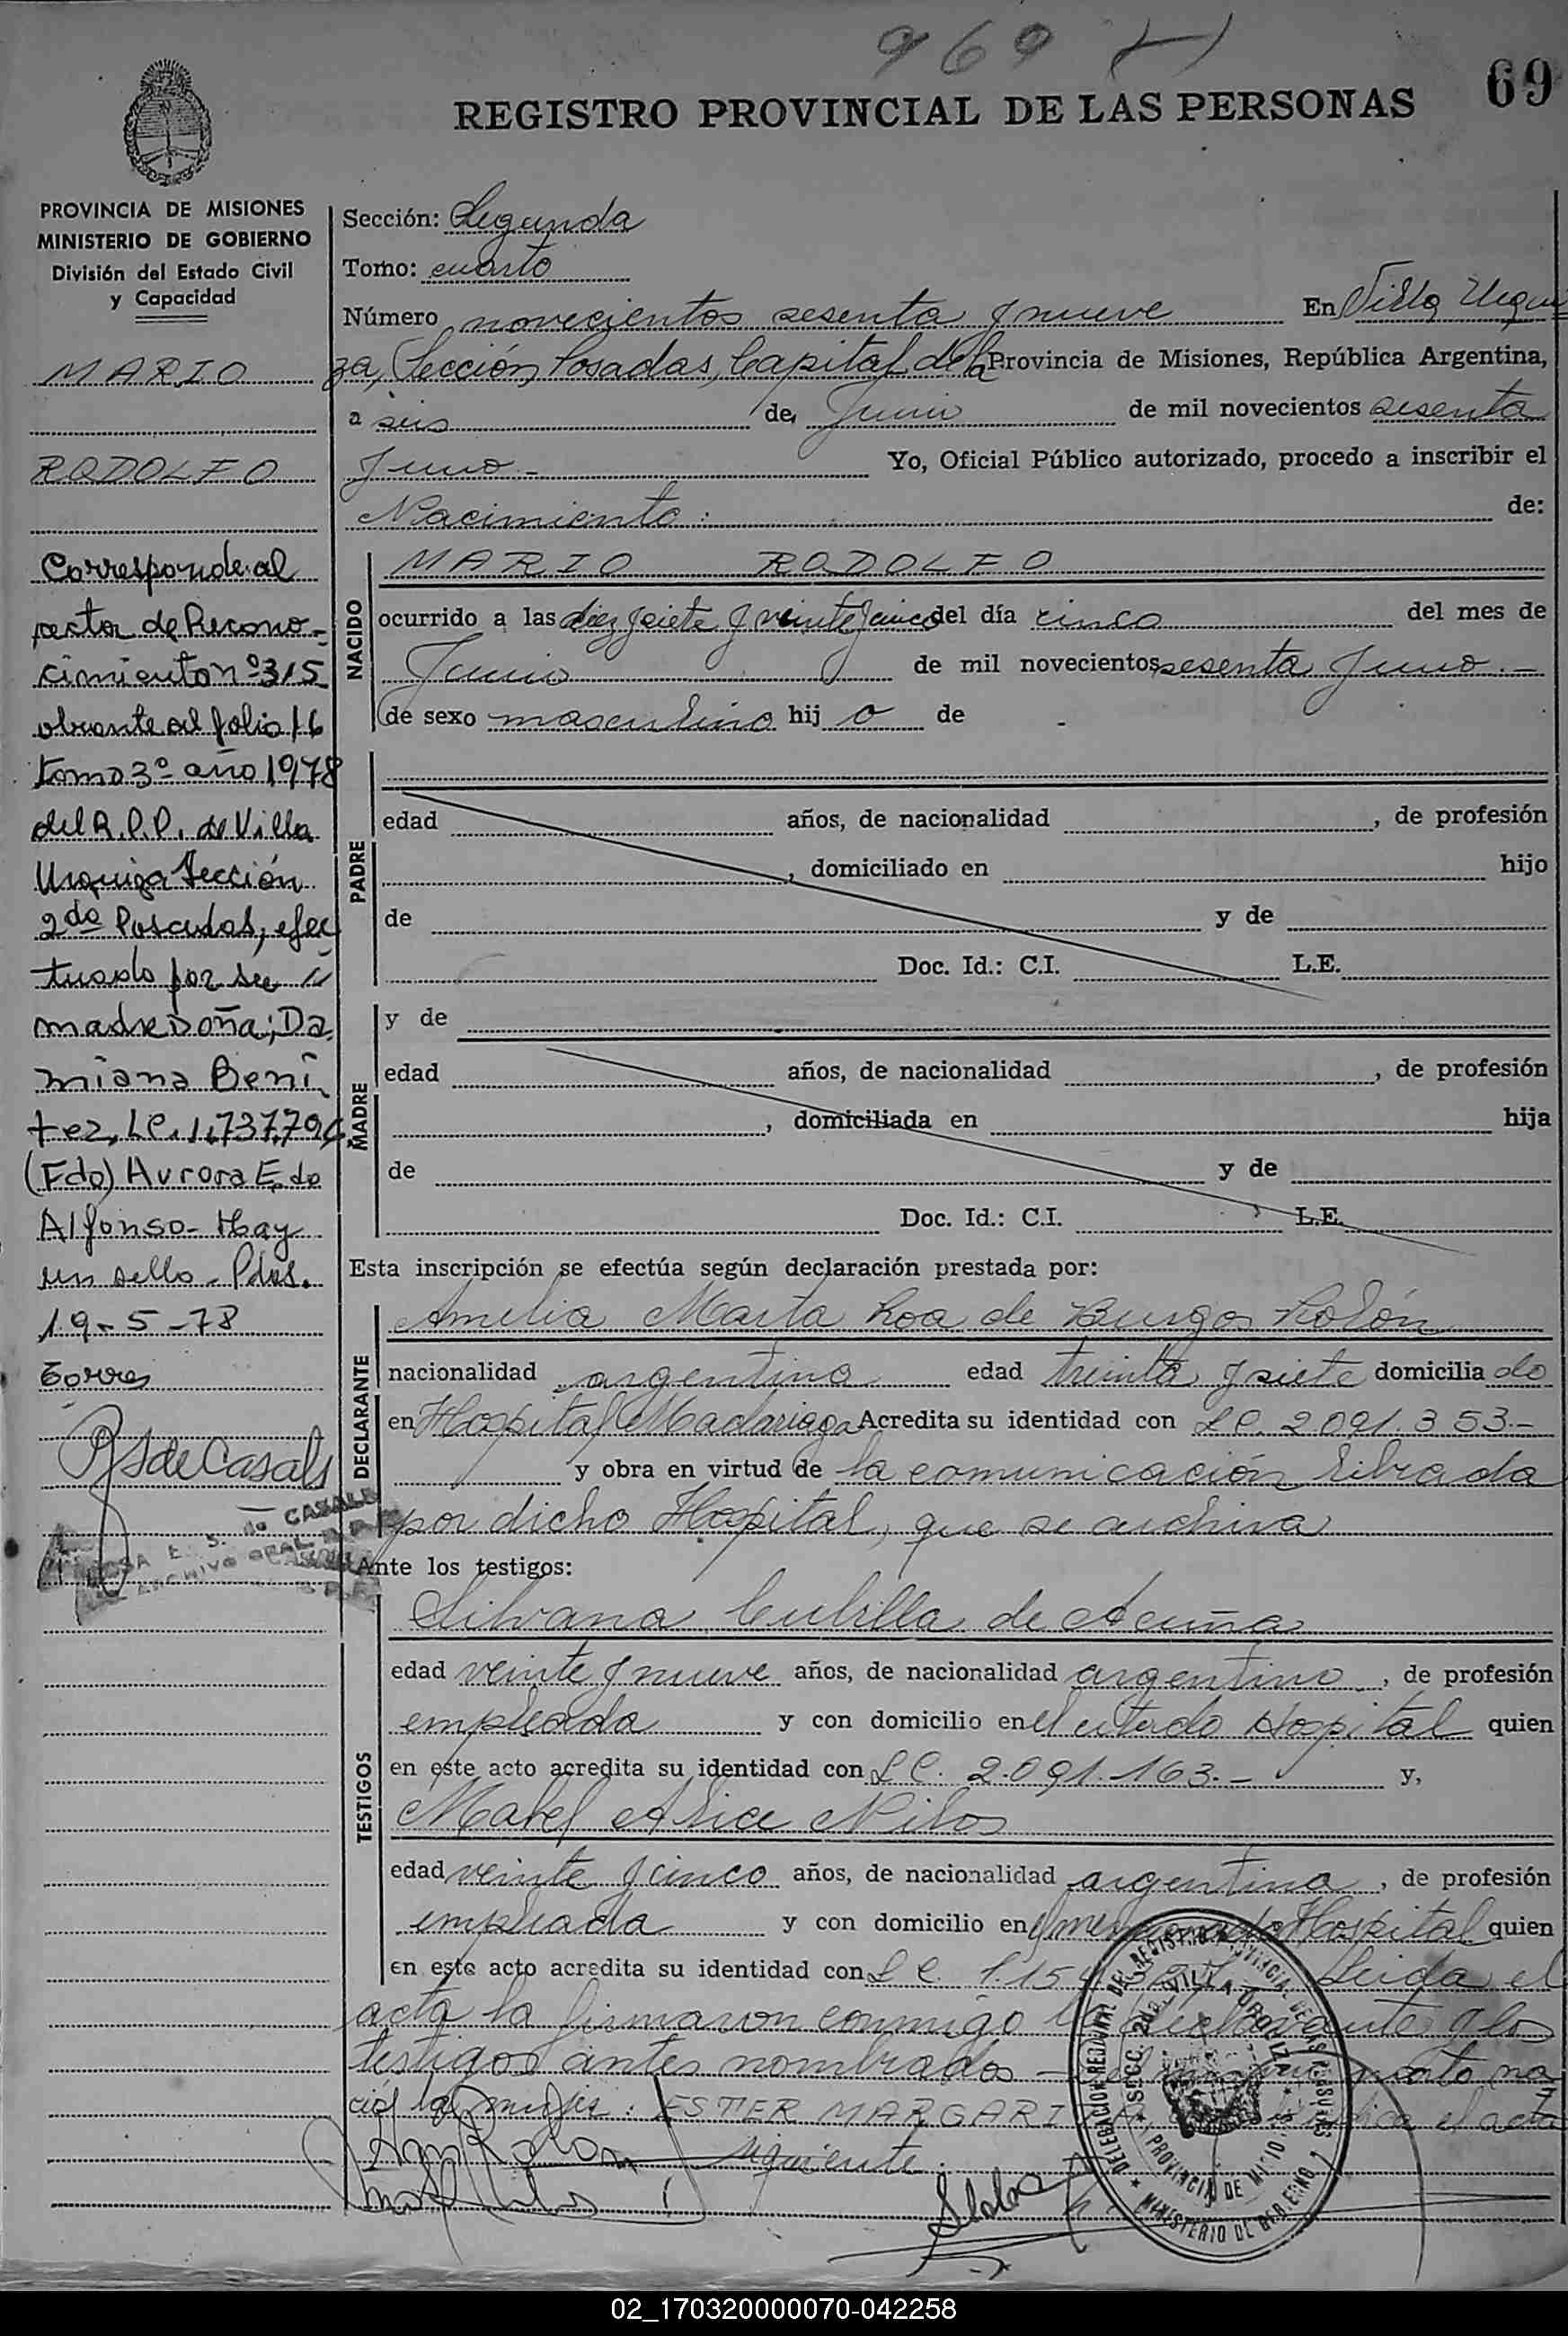 969
69
REGISTRO PROVINCIAL DE LAS PERSONAS
PROVINCIA DE MISIONES
MINISTERIO DE GOBIERNO
División del Estado Civil
y Capacidad
MARIO
RODOLFO
Corresponde al
acta de Recono-
cimiento nº 315
obrante al folio 16
tomo 3º año 1978
del R.P.P. de Villa
Urquiza Sección
2da Posadas, efec
tuado por su
madre Doña; Da
miana Beni
tez, LC. 1.737.794
(Fdo) Aurora E. de
Alfonso - Hay
un sello - Pdas.
19-5-78
Torres
RSdeCasals
Sección: Segunda
Tomo: cuarto
Número novecientos sesenta y nueve En Villa Urqui
za, Sección Posadas, Capital de la Provincia de Misiones, República Argentina,
a seis de Junio de mil novecientos sesenta
y uno.- Yo, Oficial Público autorizado, procedo a inscribir el
Nacimiento: de:
NACIDO
MARIO RODOLFO
ocurrido a las diez y siete y veinte y cinco del día cinco del mes de
Junio de mil novecientos sesenta y uno.-
de sexo masculino hij o de
PADRE
edad años, de nacionalidad , de profesión
, domiciliado en hijo
de y de
Doc. Id.: C.I. L.E.
MADRE
y de
edad años, de nacionalidad , de profesión
, domiciliada en hija
de y de
Doc. Id.: C.I. L.E.
Esta inscripción se efectúa según declaración prestada por:
DECLARANTE
Amelia Marta Roa de Burgos Rolón
nacionalidad argentina edad treinta y siete domicilia do
en Hospital Madariaga Acredita su identidad con LC. 2.091.353.-
y obra en virtud de la comunicación librada
por dicho Hospital, que se archiva
Ante los testigos:
TESTIGOS
Silvana Cubilla de Acuña
edad veinte y nueve años, de nacionalidad argentino , de profesión
empleada y con domicilio en el citado Hospital quien
en este acto acredita su identidad con L C. 2.091.163.- y,
Mabel Alice
edad veinte y cinco años, de nacionalidad argentina , de profesión
empleada y con domicilio en el mencionado Hospital quien
en este acto acredita su identidad con L C. Leida el
acta la firmaron conmigo la declarante y los
testigos antes nombrados -
ció : ESTER MARGARITA el acta
siguiente.
DELEGACION DEL REGISTRO PROVINCIAL DE LAS PERSONAS
SECC. 2da. VILLA URQUIZA
PROVINCIA DE MISIONES
MINISTERIO DE GOBIERNO
02_170320000070-042258